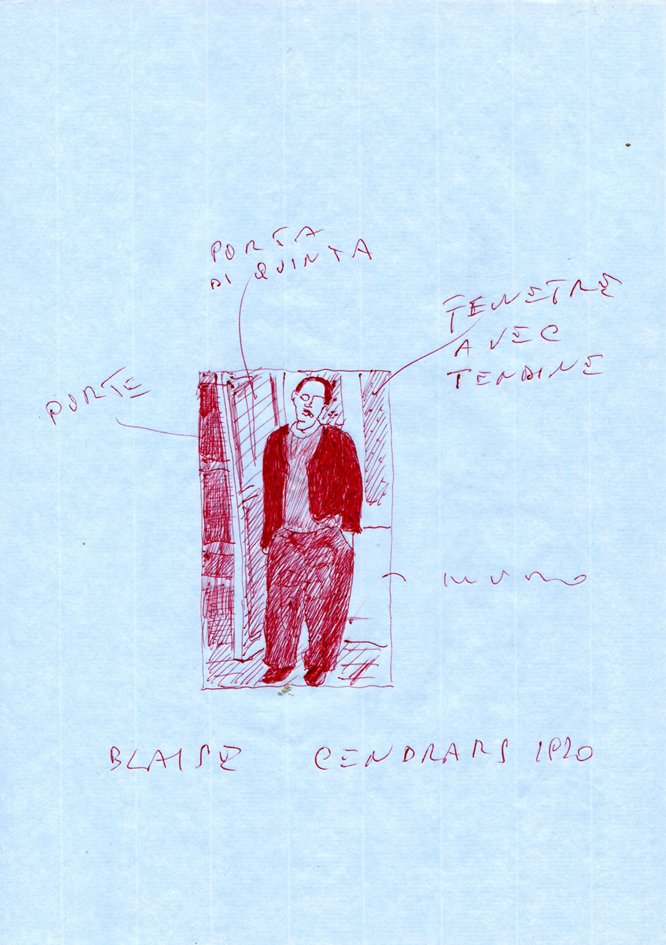 PORTA
DI QUINTA
FENETRE
AVEC
TENDINE
PORTE
muro
BLAISE CENDRARS 1920